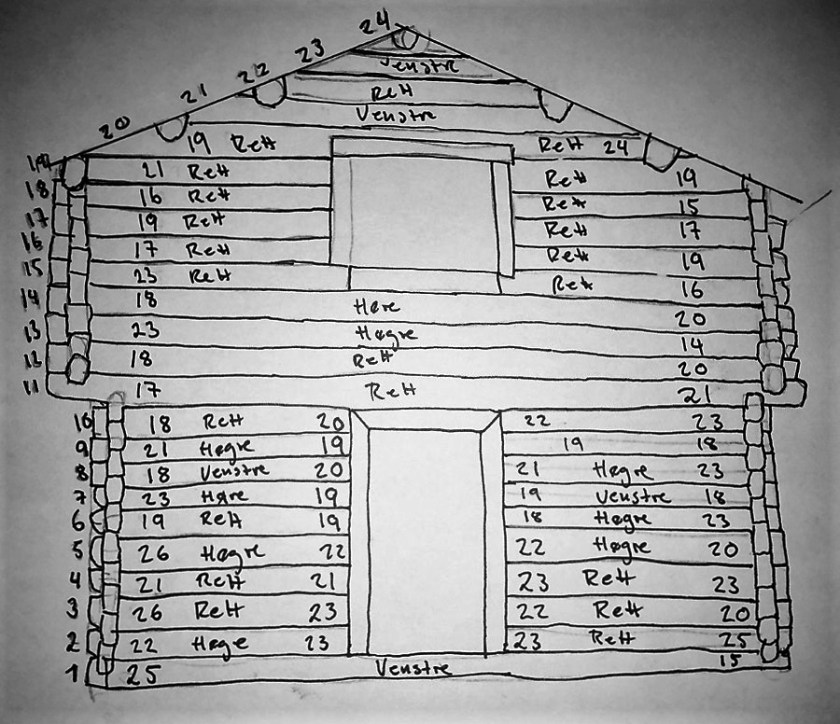 24
Venstre
23
22 Rett
21 Venstre
20 19 Rett Rett 24
19 21 Rett Rett 19
18 16 Rett Rett 15
17 19 Rett Rett 17
16 17 Rett Rett 19
15 23 Rett Rett 16
14 18 Høre 20
13 23 Høgre 14
12 18 Rett 20
11 17 Rett 21
10 18 Rett 20 22 23
9 21 Høgre 19 19 18
8 18 Venstre 20 21 Høgre 23
7 23 Høre 19 19 Venstre 18
6 19 Rett 19 18 Høgre 23
5 26 Høgre 22 22 Høgre 20
4 21 Rett 21 23 Rett 23
3 26 Rett 23 22 Rett 20
2 22 Høge 23 23 Rett 25
1 25 Venstre 15